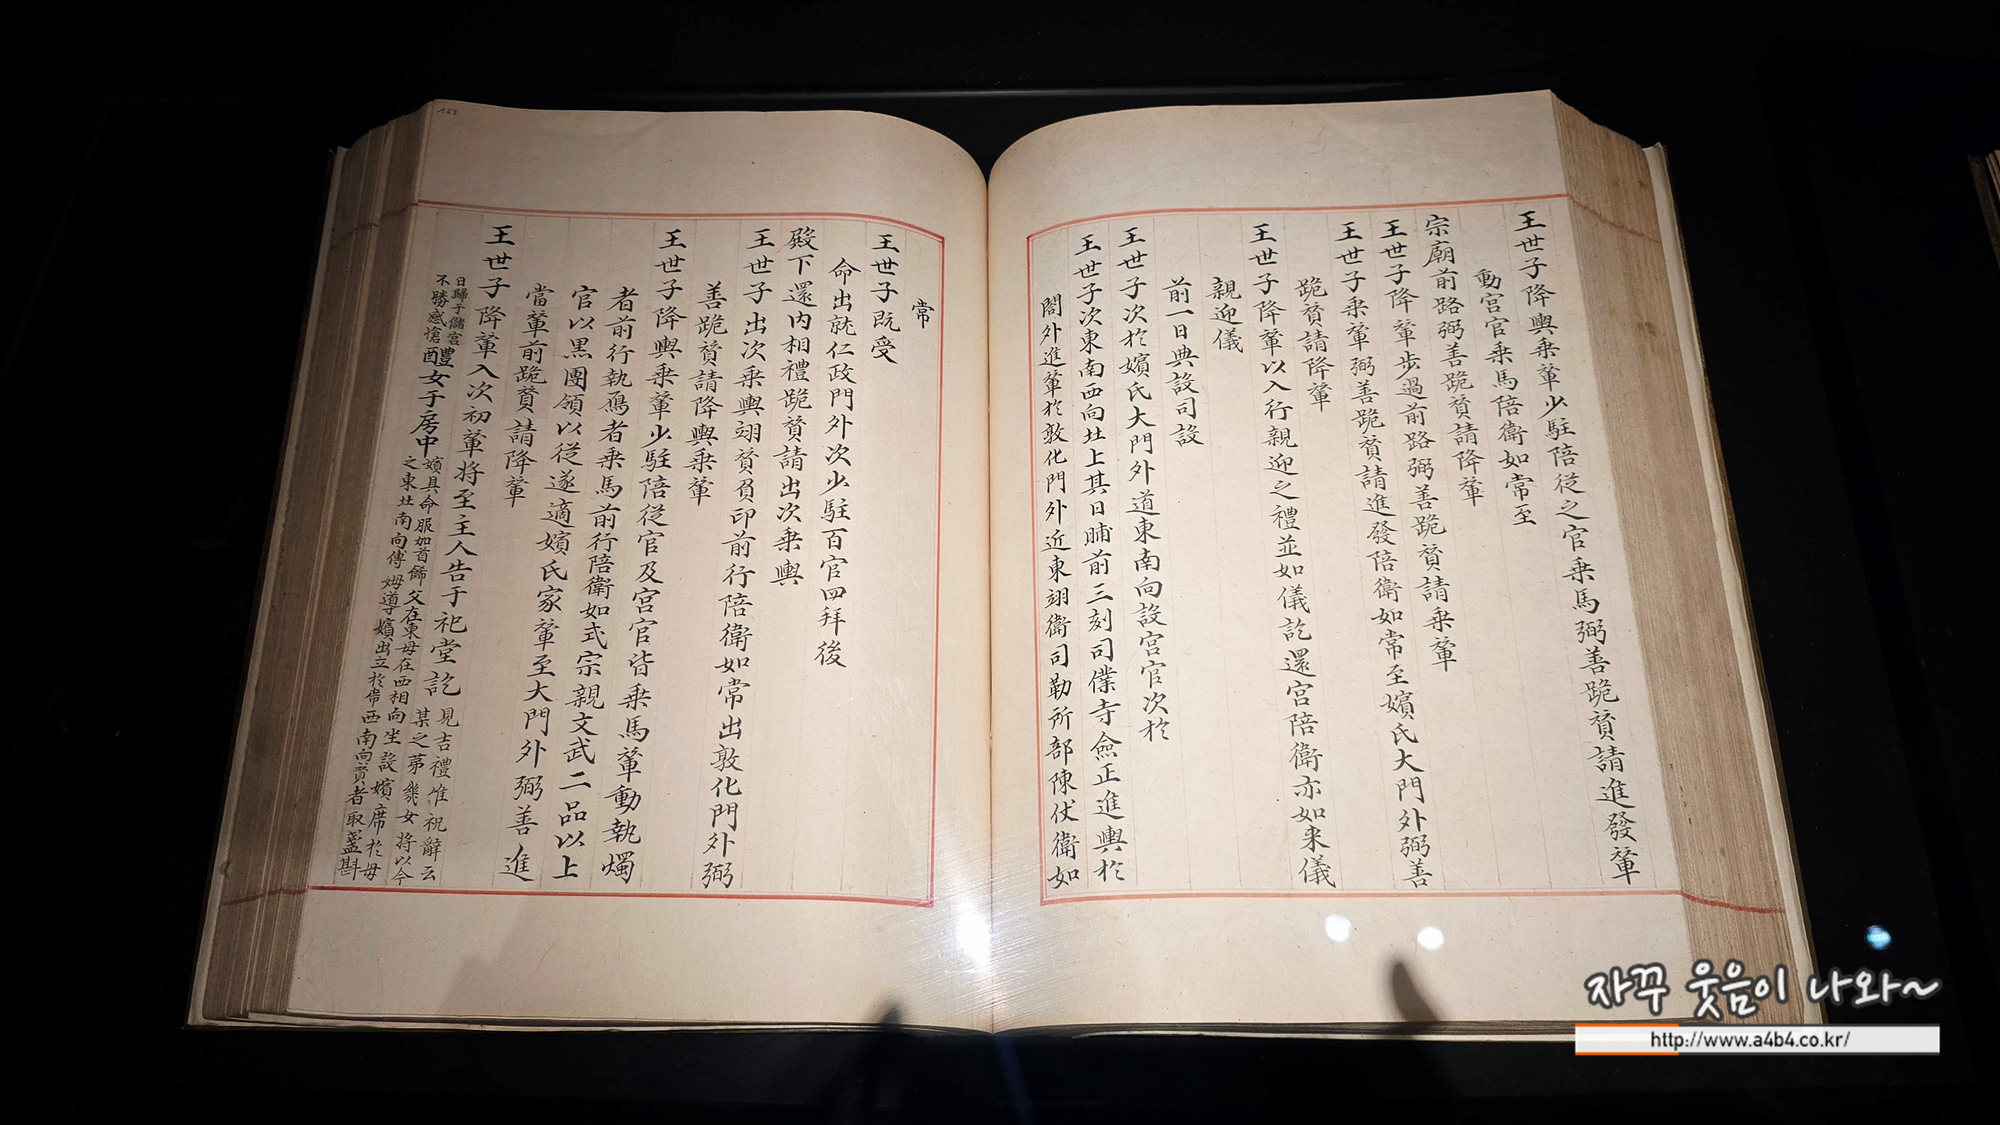 王世子降輿乘輦少駐陪從之官乘馬弼善跪贊請進發輦
動宮官乘馬陪衛如常至
宗廟前路弼善跪贊請降輦
王世子降輦步過前路弼善跪贊請乘輦
王世子乘輦弼善跪贊請進發陪衛如常至嬪氏大門外弼善
跪贊請降輦
王世子降輦以入行親迎之禮並如儀訖還宮陪衛亦如來儀
親迎儀
前一日典設司設
王世子次於嬪氏大門外道東南向設宮官次於
王世子次東南西向北上其日晡前三刻司僕寺僉正進輿於
閤外進輦於敦化門外近東翊衛司勒所部陳仗衛如
常
王世子旣受
命出就仁政門外次少駐百官四拜後
殿下還內相禮跪贊請出次乘輿
王世子出次乘輿翊贊負印前行陪衛如常出敦化門外弼
善跪贊請降輿乘輦
王世子降輿乘輦少駐陪從官及宮官皆乘馬輦動執燭
者前行執鴈者乘馬前行陪衛如式宗親文武二品以上
官以黑團領以從遂適嬪氏家輦至大門外弼善進
當輦前跪贊請降輦
王世子降輦入次初輦將至主人告于祀堂訖見吉禮惟祝辭云
某之第幾女將以今
日歸于儲宮
不勝感愴醴女于房中嬪具命服加首飾父在東母在西相向坐設嬪席於母
之東北南向傅姆導嬪出立於席西南向贊者取盞斟
자꾸 웃음이 나와~
http://www.a4b4.co.kr/